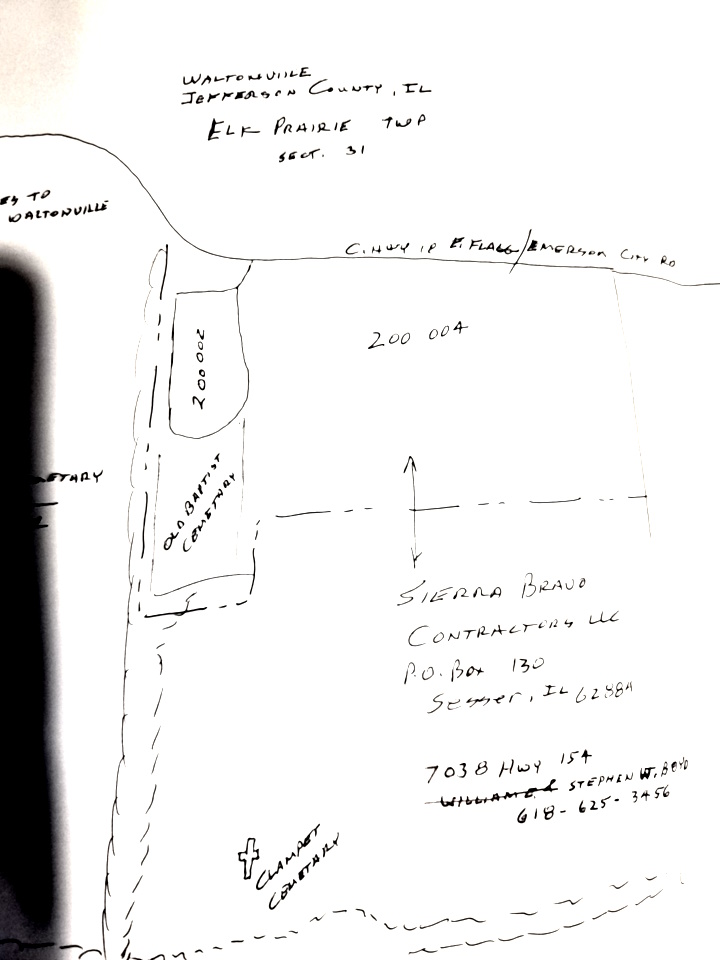 WALTONVILLE
JEFFERSON COUNTY, IL
ELK PRAIRIE TWP
SECT. 31
TO
WALTONVILLE
C. HWY 18 E FLAGG/EMERSON CITY RD
200 002
200 004
OLD BAPTIST
CEMETARY
SIERRA BRAVO
CONTRACTORS LLC
P.O. BOX 130
SESSER, IL 62884
7038 HWY 154
STEPHEN W. BOYD
618-625-3456
CLAMPET
CEMETARY